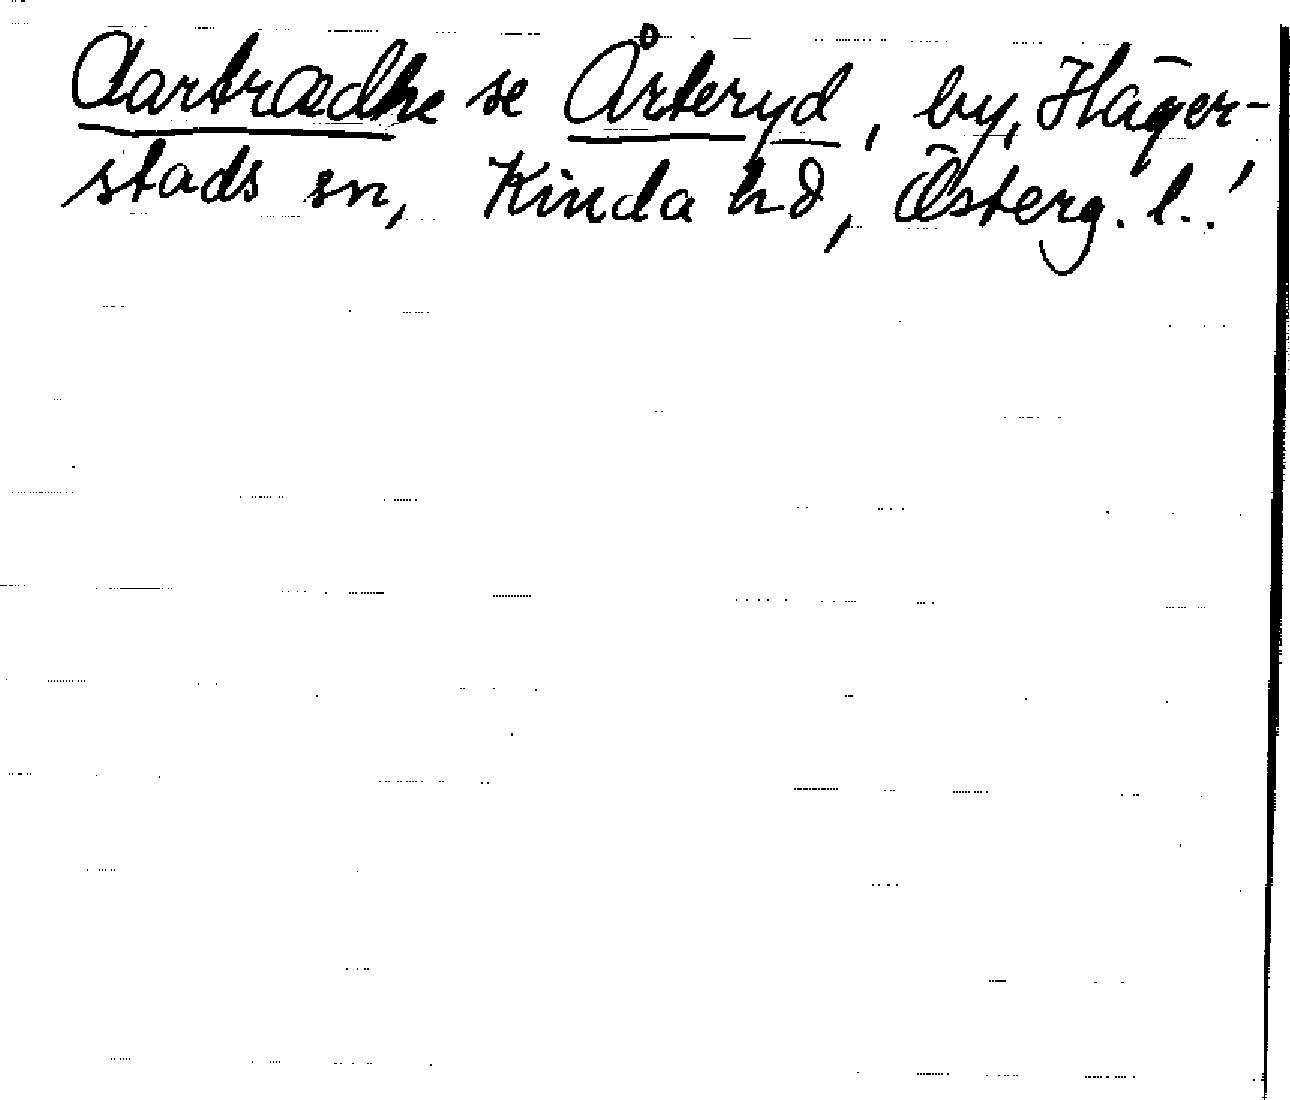 Aartrædhe se Årteryd, by, Häger-
stads sn, Kinda hd, Österg. l.!